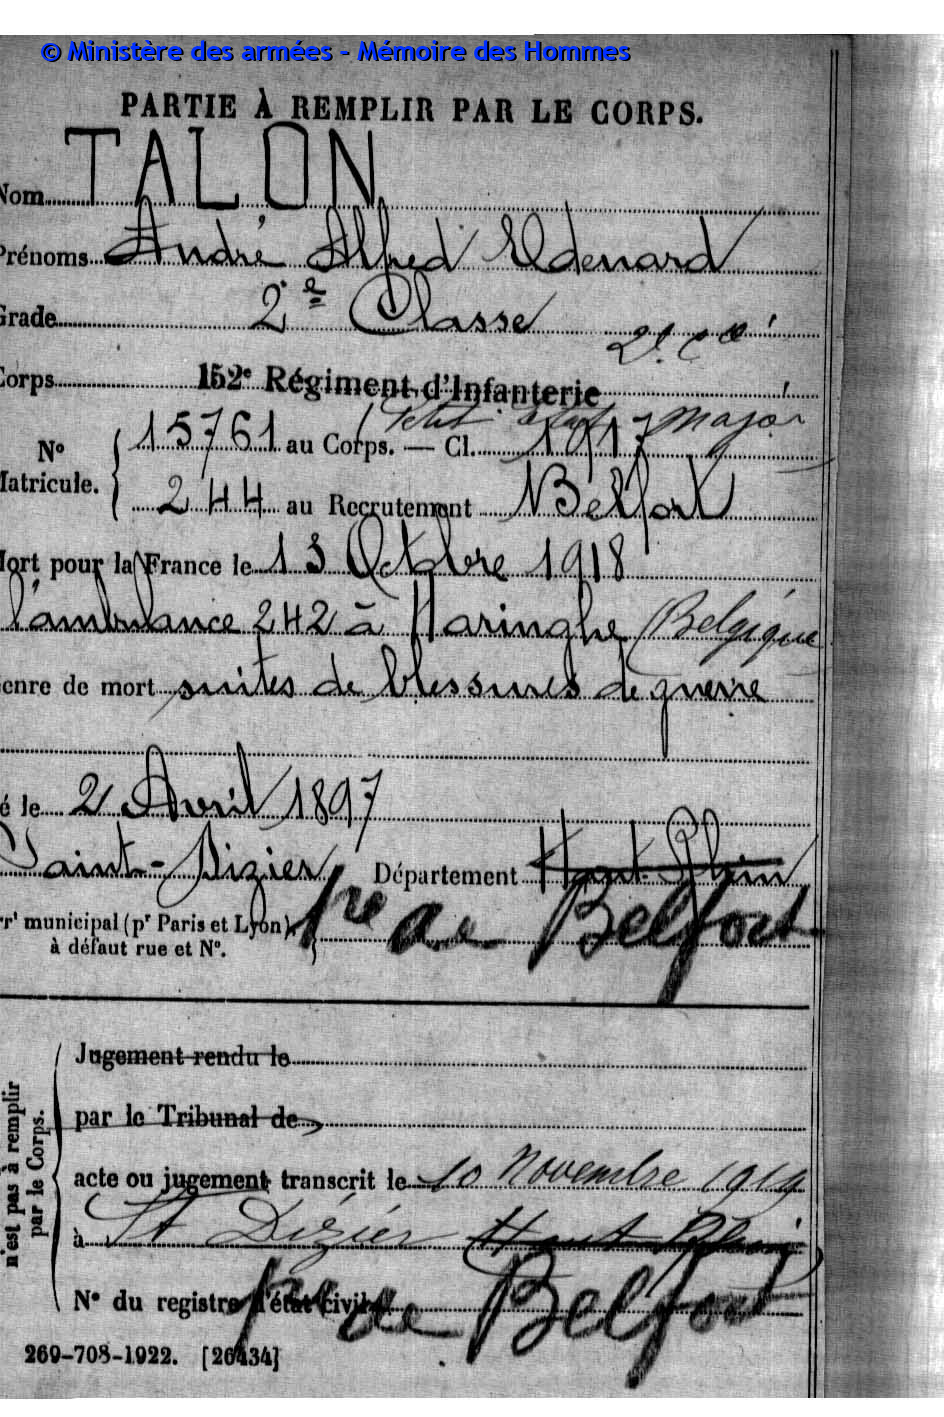 © Ministère des armées - Mémoire des Hommes
PARTIE À REMPLIR PAR LE CORPS.
Nom TALON
Prénoms André Alfred Edouard
Grade 2e Classe
2e Cie
Corps 152e Régiment d'Infanterie
(Petit état major
No Matricule. 15761 au Corps. — Cl. 1917
244 au Recrutement Belfort
Mort pour la France le 13 Octobre 1918
l'ambulance 242 à Haringhe (Belgique
enre de mort suites de blessures de guerre
é le 2 Avril 1897
Saint-Dizier Département Haut-Rhin
rrt municipal (pr Paris et Lyon), à défaut rue et No.
tre de Belfort
n'est pas à remplir par le Corps.
Jugement rendu le
par le Tribunal de
acte ou jugement transcrit le 10 Novembre 1919
à St Dizier Haut Rhin
No du registre d'état civil
tre de Belfort
269-708-1922. [26434]